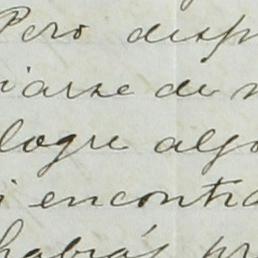 Pero desp
iarse de
logre algo
i encontra
habrás pr